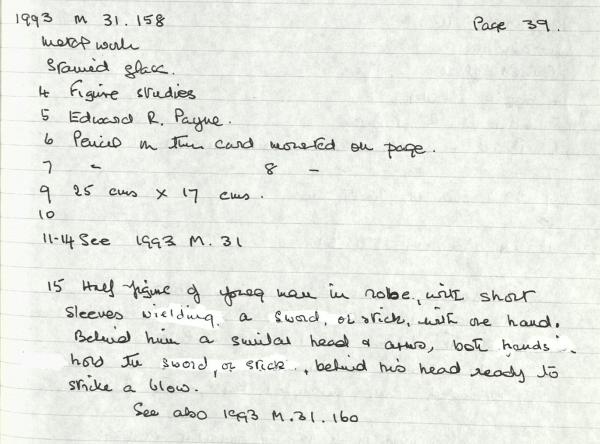 1993 M 31.158 Page 39.
metal work
Stained glass.
4 Figure studies
5 Edward R. Payne.
6 Pencil on thin card mounted on page.
7 - 8 -
9 25 cms x 17 cms.
10
11-14 See 1993 M. 31
15 Half figure of young man in robe, with short
sleeves wielding a sword, or stick, with one hand.
Behind him a similar head & arms, both hands
hold the sword, or stick, behind his head ready to
strike a blow.
See also 1993 M.31.160